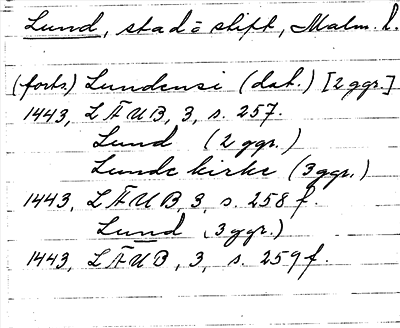 Lund, stad o stift, Malm. l.
(forts.) Lundensi (dat.) [2 ggr.]
1443, LÄUB, 3, s. 257.
Lund (2 ggr.)
Lunde kirke (3 ggr.)
1443, LÄUB, 3, s. 258 f.
Lund (3 ggr.)
1443, LÄUB, 3, s. 259 f.